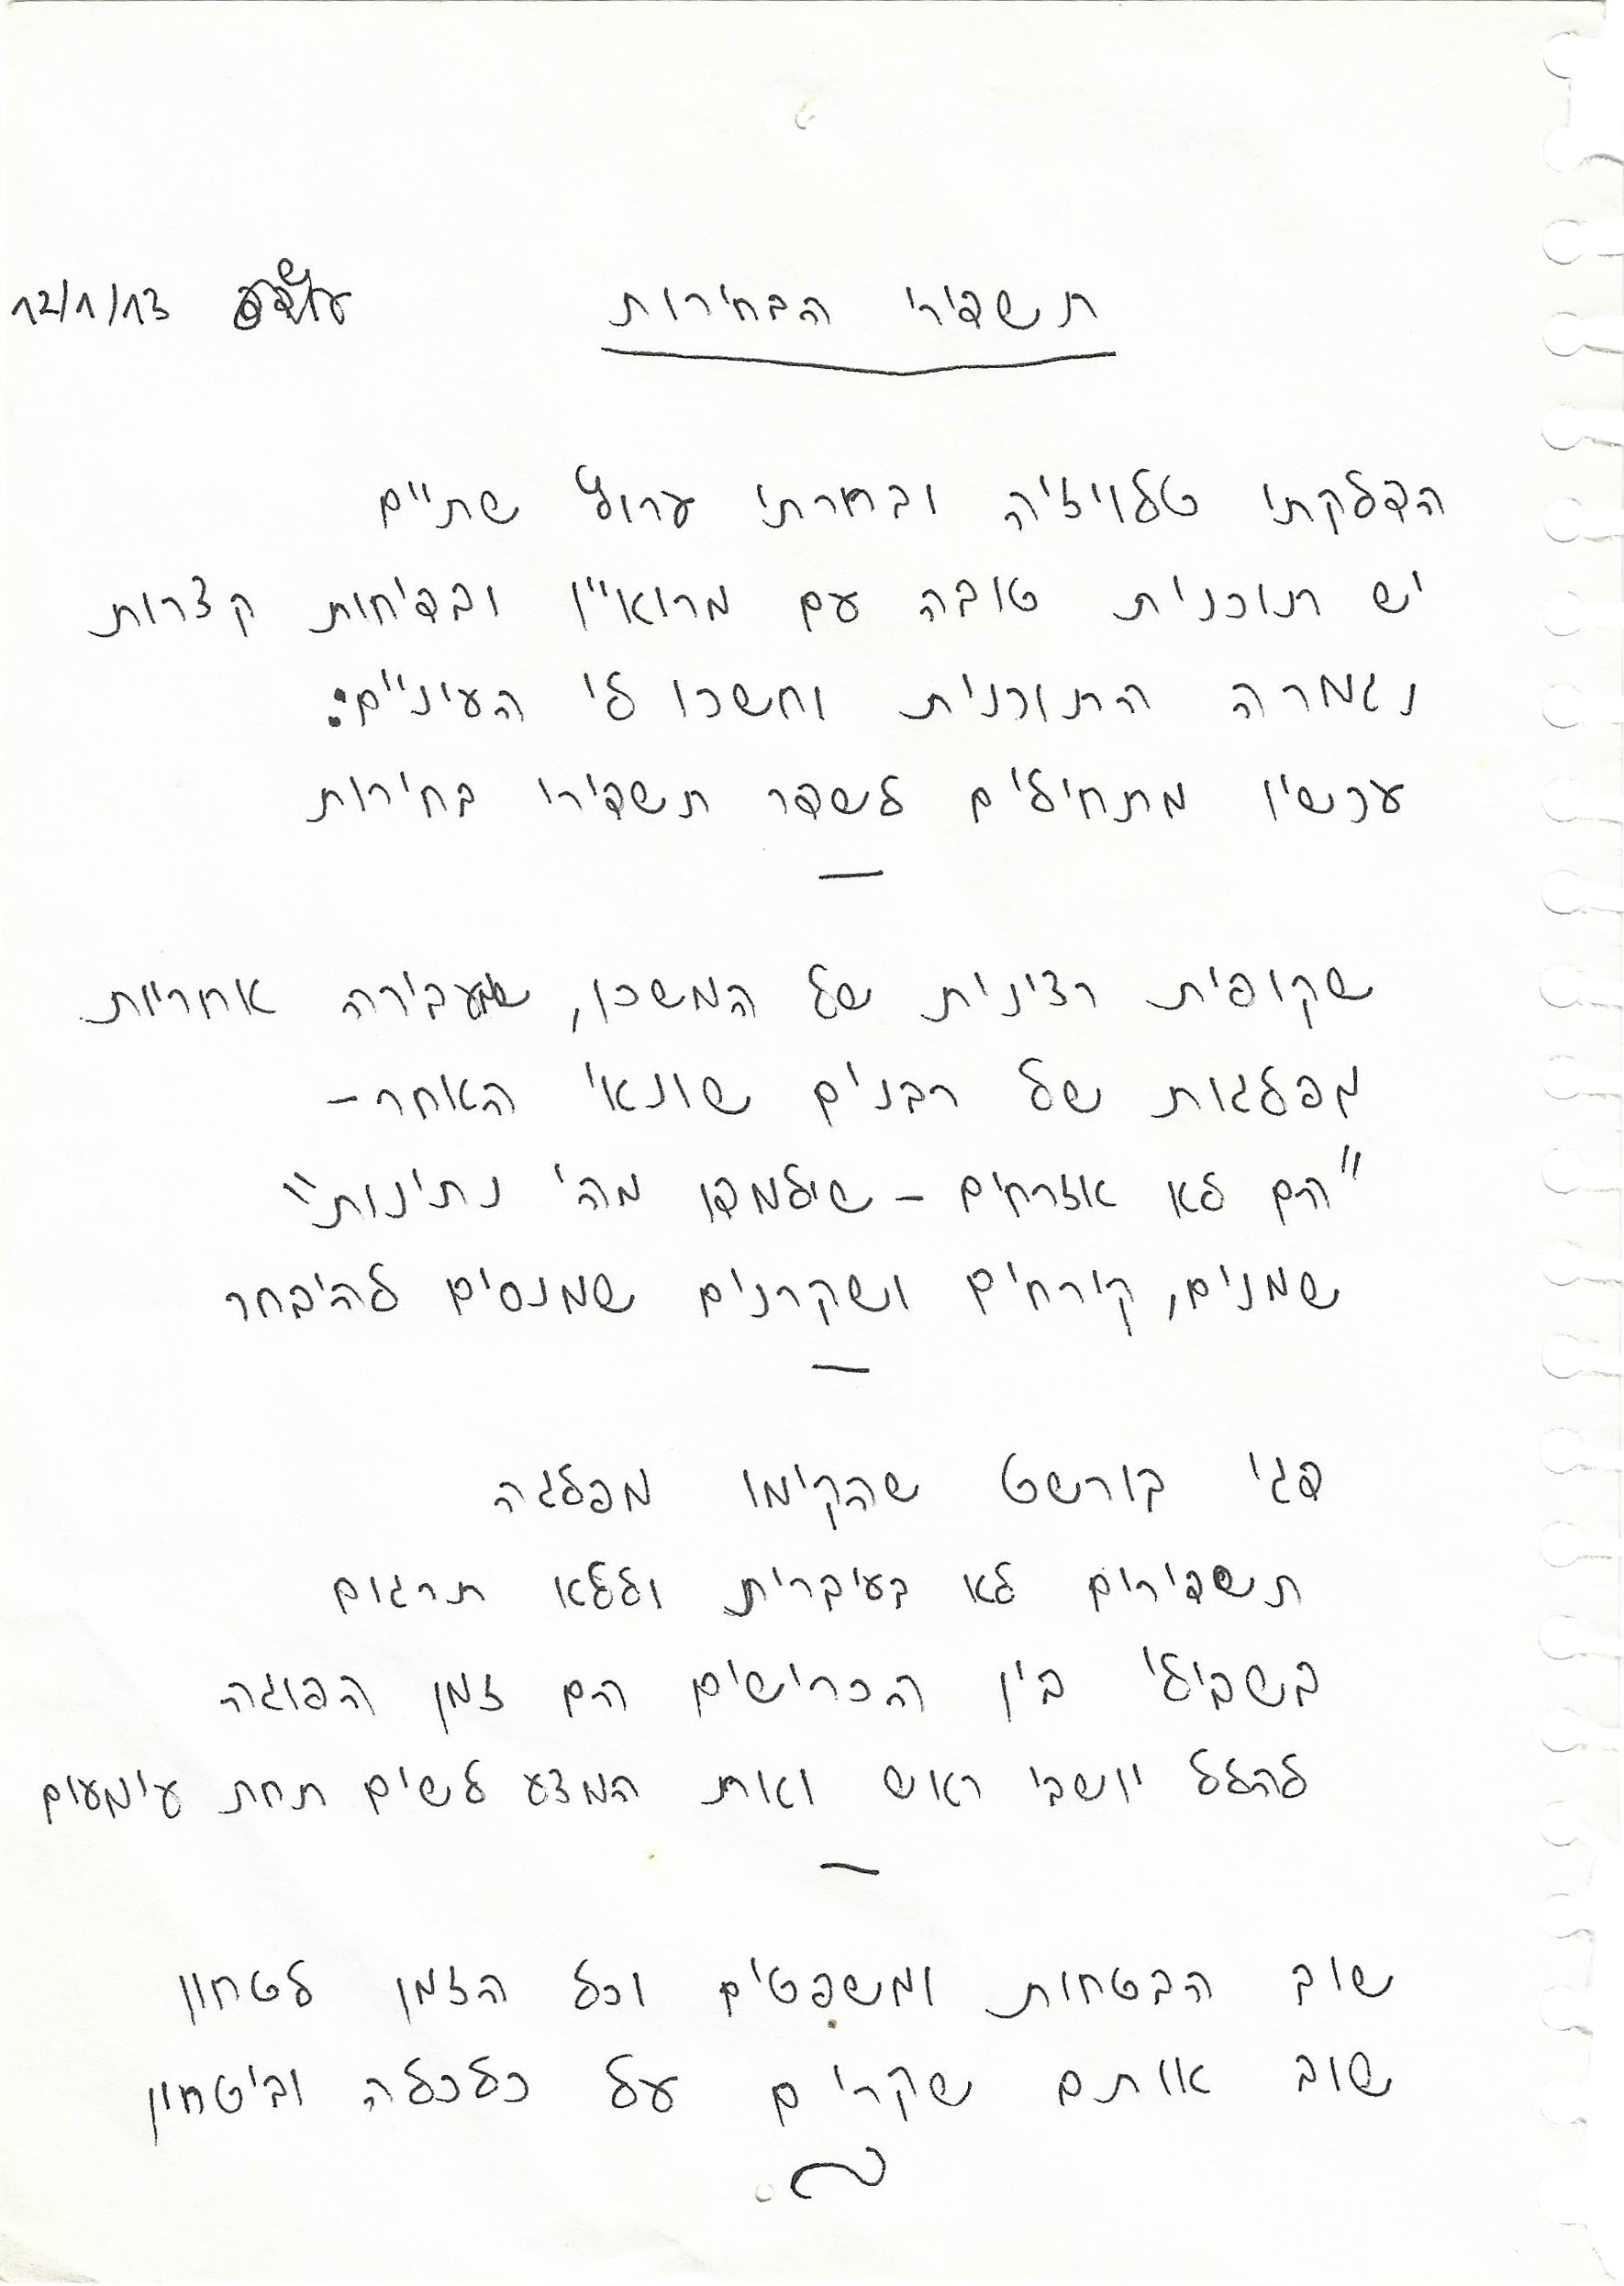 תשדירי הבחירות 12/1/13
הדלקתי טלויזיה ובחרתי ערוץ שתיים
יש תוכנית טובה עם מרואיין ובדיחות קצרות
נגמרה התוכנית וחשכו לי העיניים:
עכשיו מתחילים לשדר תשדירי בחירות
—
שקופית רצינית של המשכן, שמעבירה אחריות
מפלגות של רבנים שונאי האחר –
"הם לא אזרחים – שילמדו מהי נתינות"
שמנים, קירחים ושקרנים שמנסים להיבחר
—
דגי בורשט שהקימו מפלגה
תשדירים לא בעיברית וללא תרגום
בשבילי בין הכרישים הם זמן הפוגה
להלל יושבי ראש ואת המצע לשים תחת עימעום
—
שוב הבטחות ומשפטים וכל הזמן לטחון
שוב אותם שקרים על כלכלה וביטחון